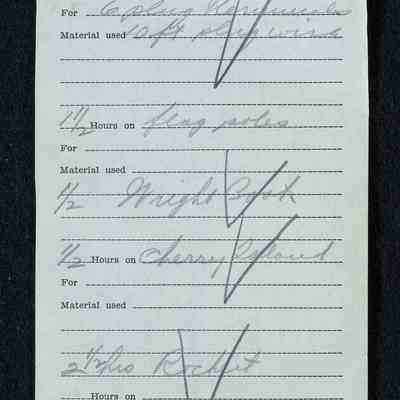 For 6 plug Terminals
Material used 10 ft plug wire
1 1/2 Hours on flag poles
For
Material used
1/2 Wright Cook
1/2 Hours on Cherry Island
For
Material used
2 1/2 hrs Rocket
Hours on